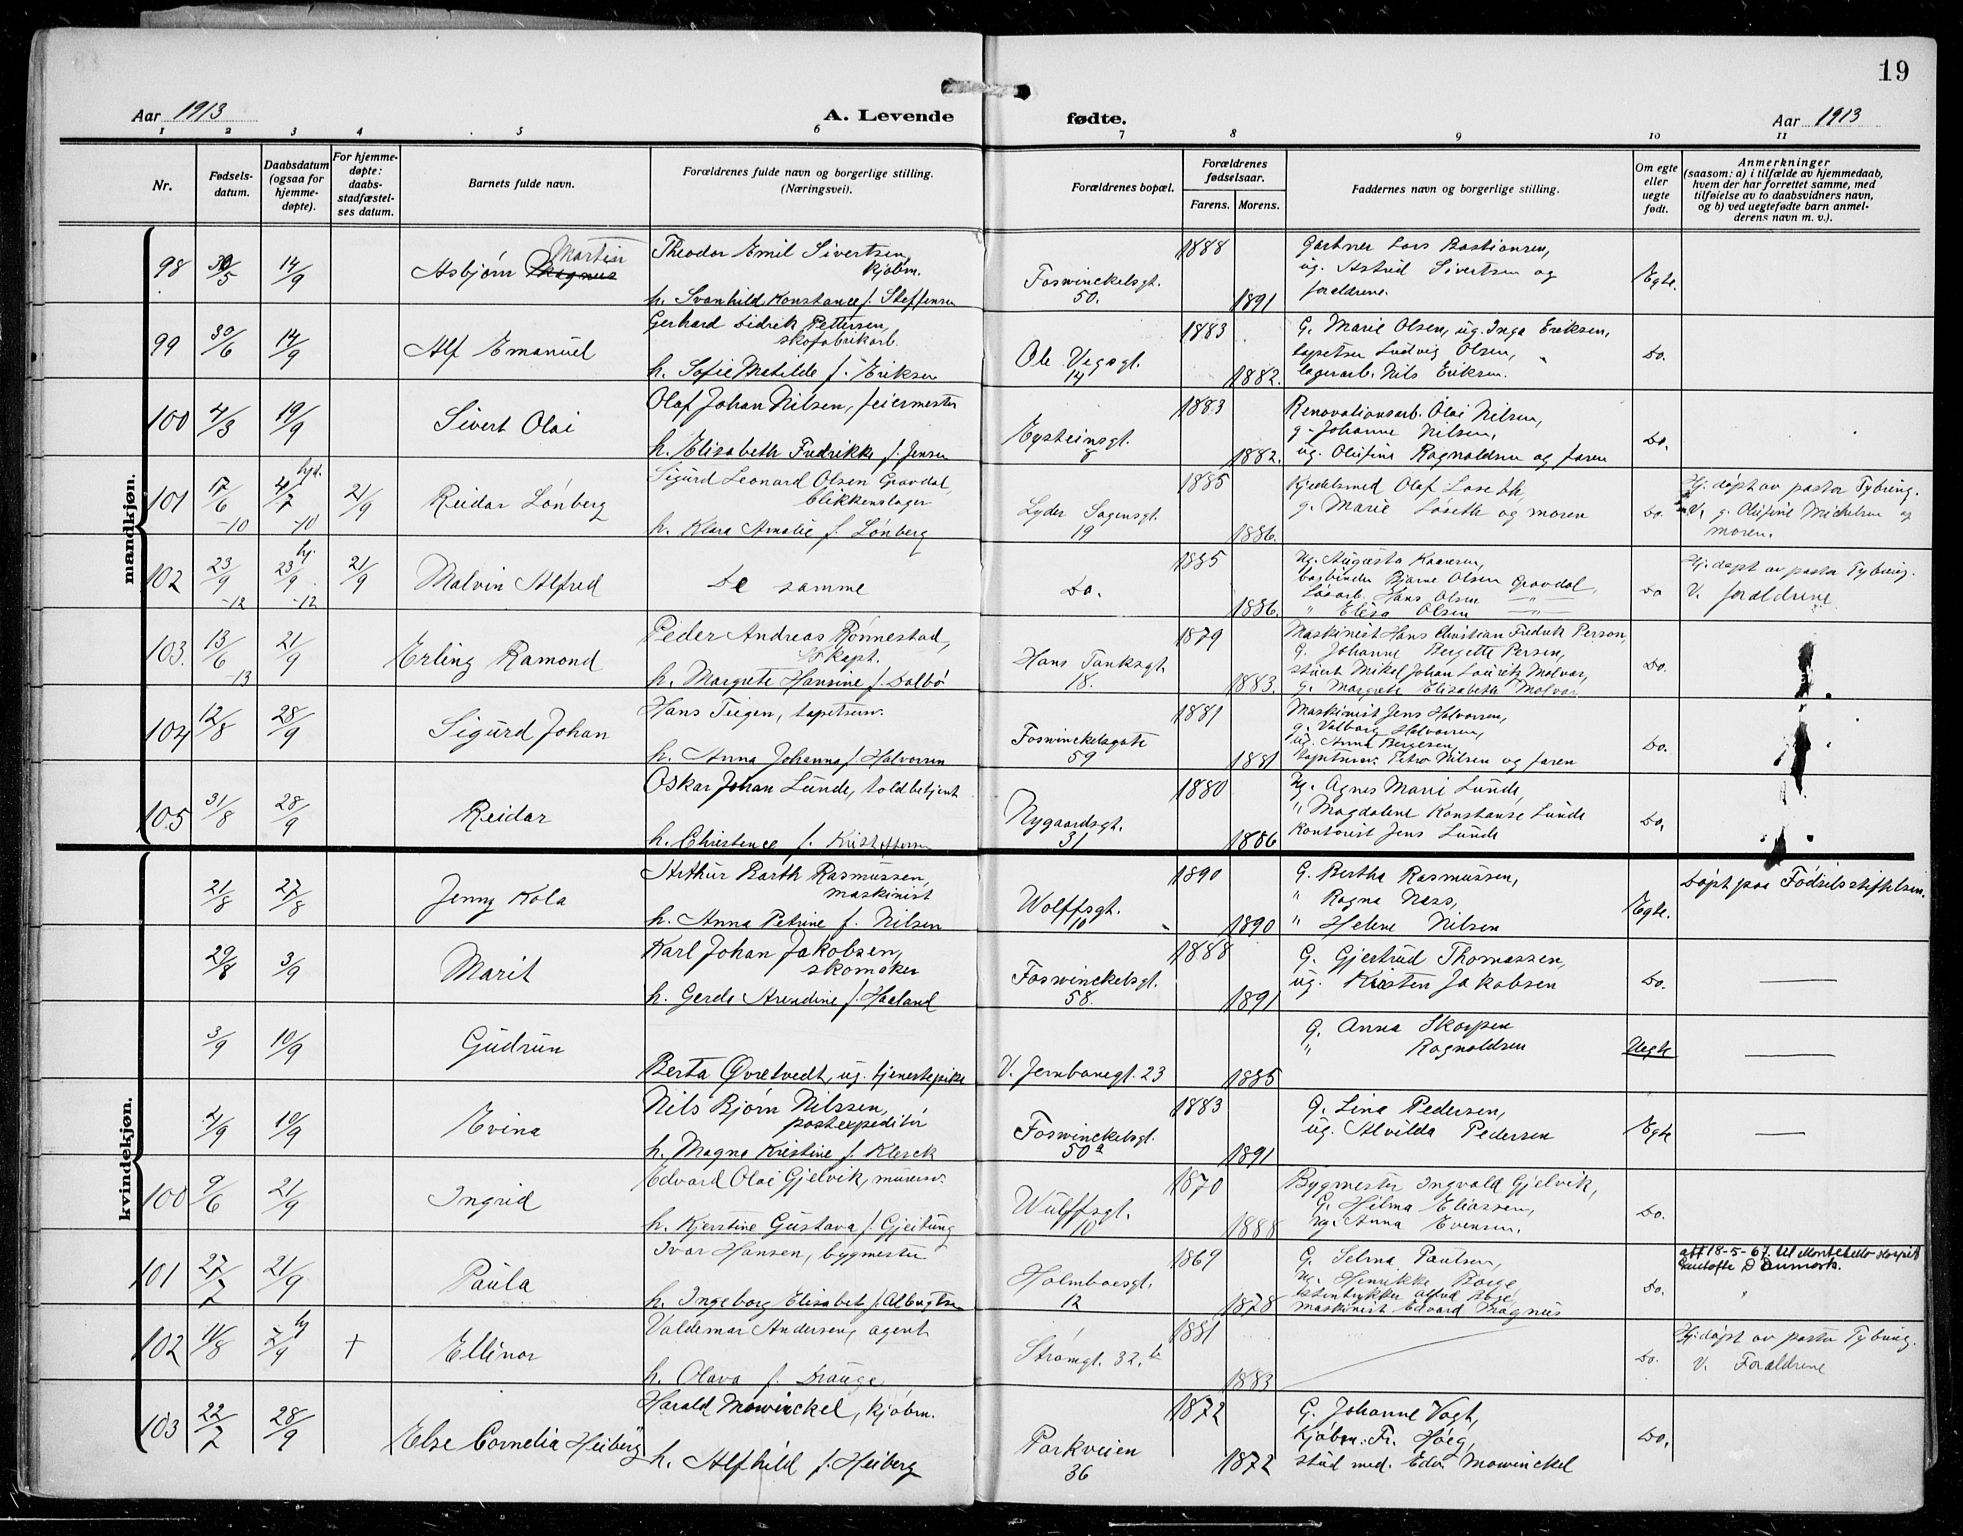 19
Aar 1913 A. Levende fødte. Aar 1913
1 2 3 4 5 6 7 8 9 10 11
Nr.
Fødsels-
datum.
Daabsdatum
(ogsaa for
hjemme-
døpte).
For hjemme-
døpte:
daabs-
stadfæstel-
ses datum.
Barnets fulde navn.
Forældrenes fulde navn og borgerlige stilling.
(Næringsvei).
Forældrenes bopæl.
Forældrenes
fødselsaar.
Farens. Morens.
Faddernes navn og borgerlige stilling.
Om egte
eller
uegte
født.
Anmerkninger
(saasom: a) i tilfælde av hjemmedaab,
hvem der har forrettet samme, med
tilføielse av to daabsvidners navn,
og b) ved uegtefødte barn anmel-
derens navn m. v.).
mandkjøn.
98 30/5 14/9 Asbjørn Magnus Martin
Theodor Emil Sivertsen,
kjøbm.
h. Svanhild Konstance f. Steffensen
Foswinckelsgt.
50.
1888
1891
Gartner Lars Bastiansen,
ug. Astrid Sivertsen og
forældrene.
Egte.
99 30/6 14/9 Alf Emanuel
Gerhard Didrik Pettersen,
skofabrikarb.
h. Sofie Matilde f. Eriksen
Ole Vegsgt.
14
1883
1882.
G. Marie Olsen, ug. Inga Eriksen,
tapetser Ludvig Olsen,
lagerarb. Nils Eriksen.
Do.
100 4/3 19/9 Sivert Olai
Olaf Johan Nilsen, feiermester
h. Elisabeth Fredrikke f. Jensen
Eysteinsgt.
8
1883
1882.
Renovationsarb. Olai Nilsen,
g. Johanne Nilsen,
ug. Olufine Ragnaldsen og faren
Do.
101 17/6 -10 hjd. 4/7 -10 21/9 Reidar Lønberg
Sigurd Leonard Olsen Gravdal,
blikkenslager
h. Klara Amalie f. Lønberg
Lyder Sagensgt.
19
1885
1886.
Kjedelsmed Olaf Laseth,
g. Marie Laseth og moren
Do.
Hj. døpt av pastor Tybring.
V. g. Olufine Michelsen og
moren.
102 23/9 -12 hj. 23/9 -12 21/9 Malvin Alfred
De samme
Do.
1885
1886.
Ug. Augusta Kaaresen,
bogbinder Bjarne Olsen Gravdal,
Løsarb. Hans Olsen —"—
" Elisa Olsen —"—
Do
Hj. døpt av pastor Tybring.
V. forældrene
103. 13/6 -13 21/9 Erling Ramond
Peder Andreas Rønnestad,
Skapt.
h. Margrete Hansine f. Dalbø
Hans Tanksgt.
18.
1879
1883.
Maskinist Hans Christian Fredrik Person,
G. Johanne Bergette Persen,
stuert Mikal Johan Lauritz Molvær,
g. Margrete Elisabeth Molvær
Do.
104 12/8 28/9 Sigurd Johan
Hans Teigen, tapetsersv.
h. Anna Johanna f. Halvorsen
Foswinckelsgate
59
1881
1881
Maskinist Jens Halvorsen,
g. Valborg Halvorsen,
ug. Anna Bergesen,
tapetsersv. Petro Nilsen og faren
Do.
105 31/8 28/9 Reidar
Oskar Johan Lunde, toldbetjent
h. Christence f. Kristoffersen
Nygaardsgt.
31
1880
1886
Ug. Agnes Marie Lunde,
" Magdalene Konstanse Lunde
Kontorist Jens Lunde
Do.
kvindekjøn.
21/8 27/8 Jenny Kola
Arthur Barth Rasmussen,
maskinist
h. Anna Petrine f. Nilsen
Wolffsgt.
10
1890
1890
G. Bertha Rasmussen,
" Ragna Næss,
" Helene Nilsen
Egte.
Døpt paa Fødselsstiftelsen.
29/8 3/9 Marit
Karl Johan Jakobsen,
skomaker
h. Gerda Arendine f. Haaland
Foswinckelsgt.
58.
1888
1891
G. Gjertrud Thomassen,
ug. Kirsten Jakobsen
Do.
3/9 10/9 Gudrun
Berta Øvretvedt, ug. tjenestepike
V. Jernbanegt. 23
1885
G. Anna Skorpen
" Ragnaldsen
Uegte
2/9 10/9 Evina
Nils Bjørn Nilssen,
postexpeditør
h. Magna Kristine f. Klerck
Foswinckelsgt.
50a
1883
1891
G. Lina Pedersen,
ug. Alvilda Pedersen
Egte
100 9/6 21/9 Ingrid
Edvard Olai Gjelvik, murersv.
h. Kjerstine Gustava f. Gjeitung
Wulffsgt.
10
1870
1888
Bygmester Ingvald Gjelvik,
G. Hilma Eliassen,
Ug. Anna Evensen.
Do.
101 27/7 21/9 Paula
Ivar Hansen, bygmester
h. Ingeborg Elisabet f. Albrigtsen
Holmboesgt.
12
1869
1878
G. Selma Paulsen,
Ug. Henrikke Borge,
Stentrykker Alfred Borge,
maskinist Edvard Magnus
Do.
att 18-5-67 til Montebello Hospit
Gentofte Danmark.
102 11/8 hj 7/9 + Ellinor
Valdemar Andersen, agent
h. Olava f. Drange
Strømgt. 32.b
1881
1883
Do.
Hj. døpt av pastor Tybring.
V. Forældrene
103 22/7 28/9 Else Cornelia Heiberg
Harald Mowinckel, kjøbm.
h. Alfhild f. Heiberg
Parkveien
36
1872
1872
G. Johanne Vogt,
Kjøbm. Fr. Høeg,
stud med. Edv Mowinckel
Do.